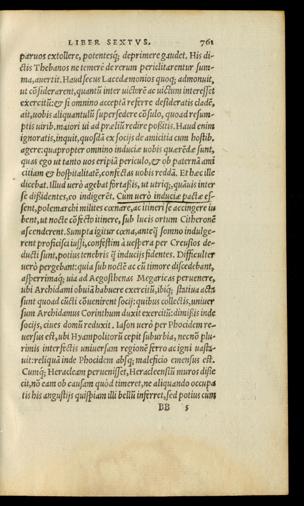 LIBER SEXTVS. 761
paruos extollere, potentesq́; deprimere gaudet. His di-
ctis Thebanos ne temerè de rerum periclitarentur sum-
ma, auertit. Haud secus Lacedæmonios quoq; admonuit,
ut cõsiderarent, quantũ inter uictorẽ ac uictum interesset
exercitũ: & si omnino acceptã referre desideratis cladẽ,
ait, uobis aliquantulũ supersedere cõsulo, quoad resum-
ptis uirib. maiori ui ad prælũ redire poßitis. Haud enim
ignoratis, inquit, quosdã ex socijs de amicitia cum hostib,
agere: quapropter omnino induciæ uobis quærẽdæ sunt,
quas ego ut tanto uos eripiã periculo, & ob paternã ami
citiam & hospitalitatẽ, confectas uobis reddã. Et hæc ille
dicebat. Illud uerò agebat fortaßis, ut utriq;, quãuis inter
se dißidentes, eo indigerẽt. Cum uerò induciæ pactæ es-
sent, polemarchi milites cœnare, ac itineri se accingere iu
bent, ut nocte cõfecto itinere, sub lucis ortum Citheronẽ
ascenderent. Sumpta igitur cœna, anteq̃ somno indulge-
rent proficisci iußi, confestim à uespera per Creusios de-
ducti sunt, potius tenebris q̃ inducijs fidentes. Difficulter
uerò pergebant: quia sub noctẽ ac cũ timore discedebant,
asperrimaq; uia ad Aegosthenas Megaricas peruenere,
ubi Archidami obuiã habuere exercitũ, ibiq; statiua acta
sunt quoad cũcti cõuenirent socij: quibus collectis, uniuer
sum Archidamus Corinthum duxit exercitũ: dimißis inde
socijs, ciues domũ reduxit. Iason uerò per Phocidem re-
uersus est, ubi Hyampolitorũ cepit suburbia, necnõ plu-
rimis interfectis uniuersam regionẽ ferro ac igni uasta-
uit: reliquã inde Phocidem absq; maleficio emensus est.
Cumq; Heracleam perueniſset, Heracleensiũ muros disie
cit, nõ eam ob causam quòd timeret, ne aliquando occupa
tis his angustijs quispiam illi bellũ inferret, sed potius cum
BB 5